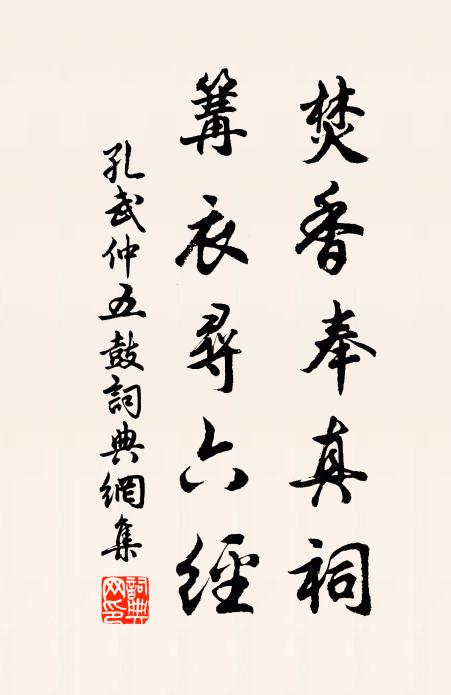 焚香奉真祠
篝衣尋六經
孔武仲五鼓詞典網集
詞典网印